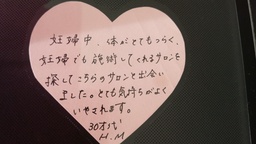 妊婦中、体がとてもつらく、
妊婦でも施術してくれるサロンを
探してこちらのサロンと出会い
ました。とても気持ちがよく
いやされます。
30才代
H.M